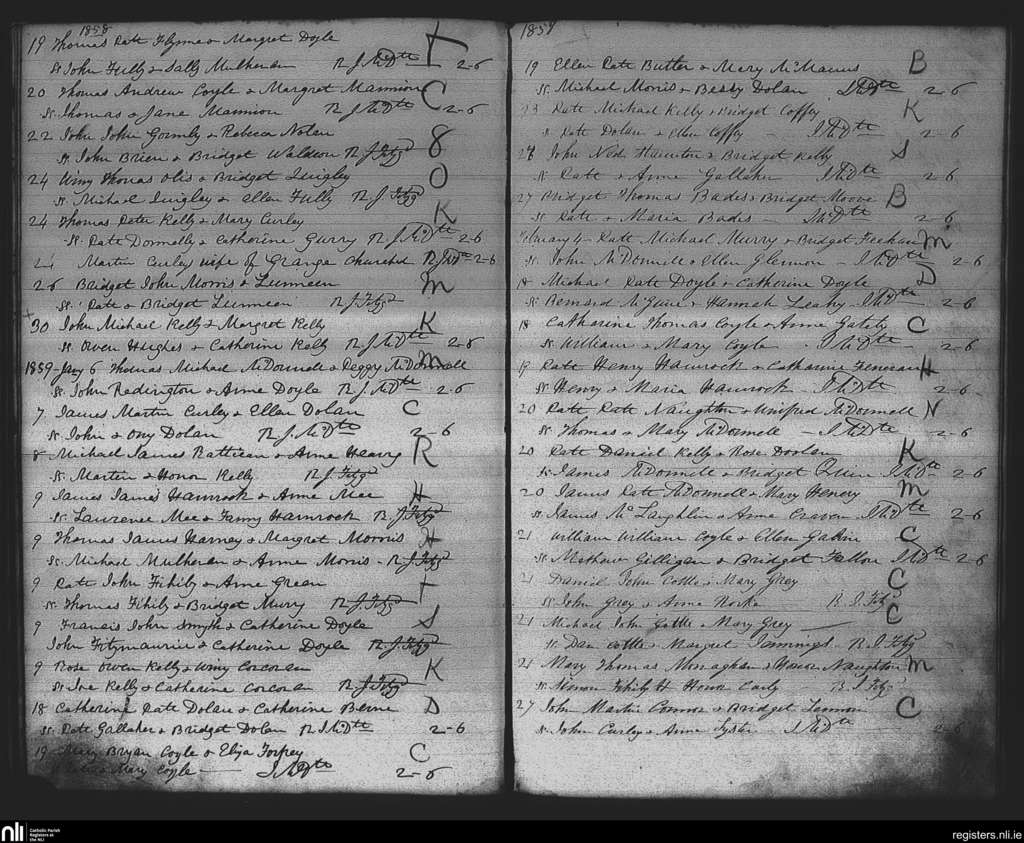 1858
19 Thomas Patt Flynn & Margret Doyle F
Sp. John Fully & Sally Mulheran R J. McDtt 2-6
20 Thomas Andrew Coyle & Margret Mannion C
Sp. Thomas & Jane Mannion R J McDtt 2-6
22 John John Gormly & Rebeca Nolan 8
Sp. John Brien & Bridget Waldron R J Fitzg
24 Winy Thomas Olis & Bridget Quigley O
Sp. Michael Quigley & Ellen Fully R J Fitzg
24 Thomas Pate Kelly & Mary Curley K
Sp. Pate Donnelly & Catherine Gurry R J. McDtt 2-6
24 Martin Curley wife of Grange Churchd R J McDtt 2-6
26 Bridget John Morris & Lunneen M
Sp. Pate & Bridget Lunneen R J Fitzg
30 John Michael Kelly & Margret Kelly K
Sp. Owen Hughes & Catherine Kelly R J. McDtt 2-6
1859 Jany 6 Thomas Michael McDonnell & Peggy McDonnell M
Sp. John Redington & Anne Doyle R J. McDtt 2-6
7 James Martin Curley & Ellen Dolan C
Sp. John & Ony Dolan R J. McDtt 2-6
8 Michael James Rattican & Anne Heavy R
Sp. Martin & Honor Kelly R J Fitzg
9 James James Hamrock & Anne Mee H
Sp. Laurence Mee & Fanny Hamrock R. J. Fitzg
9 Thomas James Harney & Margret Morris H
Sp. Michael Mulheran & Anne Morris - R J Fitzg
9 Pate John Fihily & Anne Green F
Sp. Thomas Fihily & Bridget Murry R J Fitzg
9 Francis John Smyth & Catherine Doyle S
John Fitzmaurice & Catherine Doyle R. J. Fitzg
9 Rose Owen Kelly & Winy Corcoran K
Sp. Kelly & Catherine Corcoran R J Fitzg
18 Catherine Pate Dolan & Catherine Beirne D
Sp. Pate Gallaher & Bridget Dolan R J McDtt 2-6
19 Mary Bryan Coyle & Eliza C
& Mary Coyle — J McDtt 2-6
1859
19 Ellen Pate Butler & Mary McManus B
Sp. Michael Morris & Bessy Dolan J McDtt 2-6
23 Pate Michael Kelly & Bridget Coffey K
Sp. Pate Dolan & Ellen Coffy - J McDtt 2-6
John Ned & Bridget Kelly S
Sp. Pate & Anne Gallaher J McDtt 2-6
27 Bridget Thomas Badis & Bridget Moore B
Sp. Pate & Maria Badis - J McDtt 2-6
February 4 - Pate Michael Murry & Bridget Feehan M
Sp. John McDonnell & Ellen Glennon - J McDtt 2-6
Michael Pate Doyle & Catherine Doyle D
Sp. Bernard McGuire & Hannah Leahy - J McDtt 2-6
18 Catharine Thomas Coyle & Anne Gately C
Sp. William & Mary Coyle - J McDtt 2-6
19 Pate Henry Hamrock & Catharine H
Sp. Henry & Maria Hamrock - J McDtt 2-6
20 Pate Pate Naughton & Winifred McDonnell N
Sp. Thomas & Mary McDonnell - J McDtt 2-6
20 Pate Daniel Kelly & Rose Doolan K
Sp. James McDonnell & Bridget Quinn J McDtt 2-6
20 James Pate McDonnell & Mary Henery M
Sp. James McLaughlin & Anne Craven J McDtt 2-6
21 William William Coyle & Ellen Galvin C
Sp. Mathew Gilligan & Bridget Fallon J McDtt 2-6
21 Daniel John Cottle & Mary Grey C
Sp. John Grey & Anne R. J. Fitzg
21 Michael John Cottle & Mary Grey C
Sp. Dan Cottle & Margret Jennings R. J. Fitzg
21 Mary Thomas Monaghan & Honor Naughton M
Sp. Simon Fihily & Honor - R. J. Fitzg
27 John Martin Connor & Bridget Lennon C
Sp. John Curley & Anne Lyster J McDtt 2-6
nli
Catholic Parish
Registers at
the NLI
registers.nli.ie